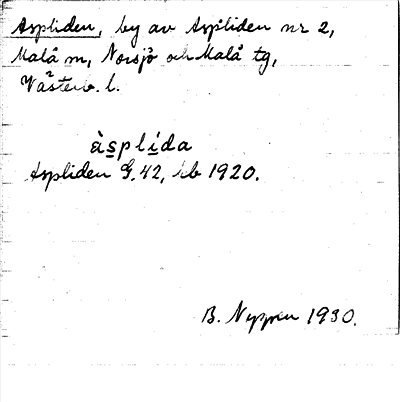 Aspliden, by av Aspliden nr 2,
Malå sn, Norsjö och Malå tg,
Västerb. l.
àsplída
Aspliden G. 42, kb 1920.
B. 1930.